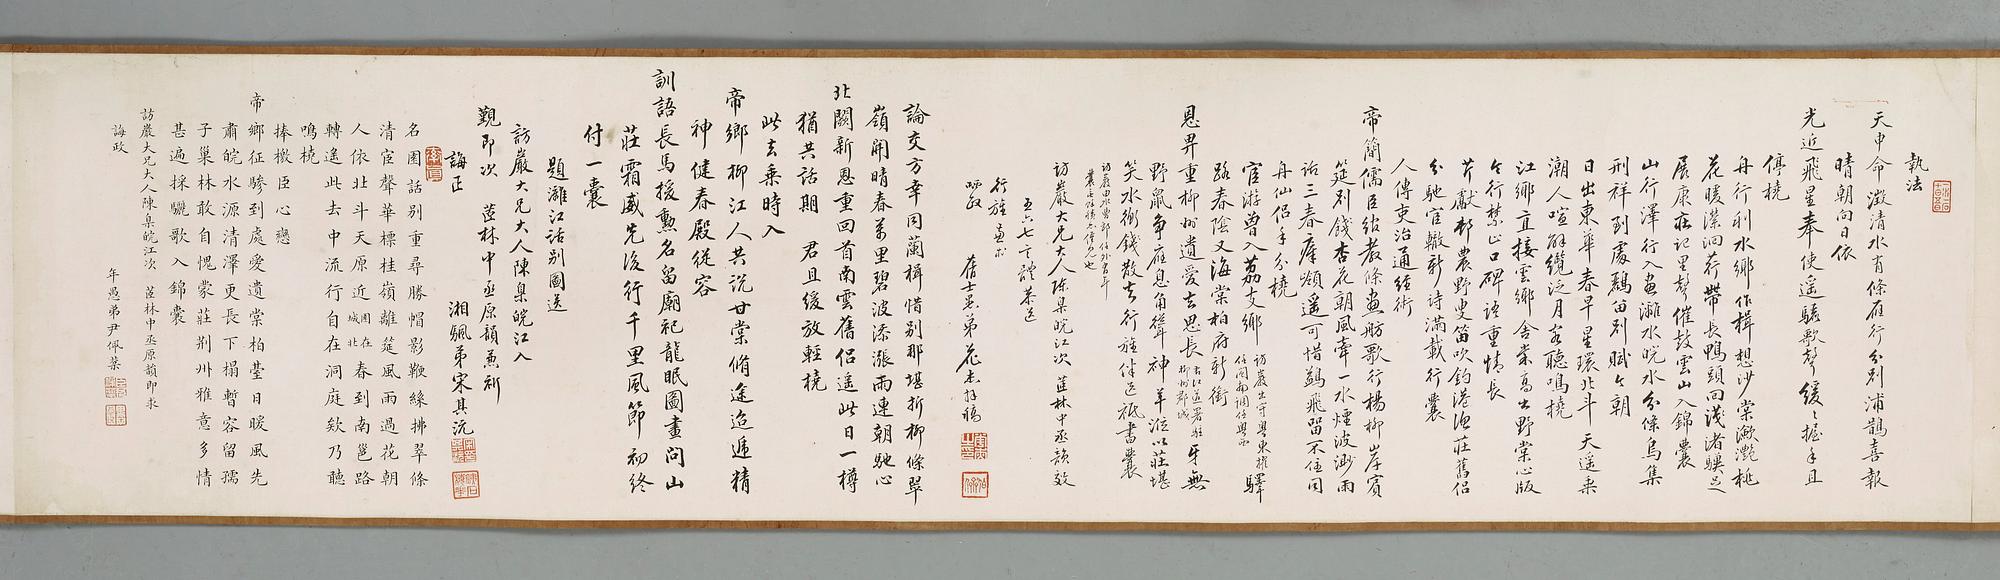 執法
天申命澂清水有條雁行分別浦鵲喜報
晴朝向日依
光近飛星奉使遥驪歌聲緩緩握手且
停橈
舟行利水鄉作楫想沙棠瀲灩桃
花暖潔洄荇帶長鴨頭向淺渚驥足
展康莊記里聲催鼓雲山入錦囊
山行澤行入畫灕水皖水分條烏集
刑祥到處鸝笛別賦今朝
日出東華春早星環北斗天遥乘
潮人喧解纜泛月客聽鳴橈
江鄉直接雲鄉舍棠高出野棠心版
令行禁止口碑語重情長
芹獻邨農野叟笛吹釣港漁莊舊侶
分馳宦轍新詩滿載行囊
人傳吏治通經術
帝簡儒臣綰教條畫舫歌行楊柳岸賓
筵別餞杏花朝風牽一水煙波渺雨
話三春塵顏遥可惜鷁飛留不住同
舟仙侶手分橈
宦游曾入荔支鄉 訪巖出守粵東攉
路春陰又海棠柏府新銜
恩畀重柳州遺愛去思長 牙無
野鼠爭應息角聳神羊泣以莊堪
笑水衡錢散去行旌伴送祗書囊
訪巖大兄大人陳臬皖江次 茝林中丞韻效
五六七言體恭送
行旌
舊士愚弟花杰拜稿
論交方幸同蘭楫惜別那堪折柳條翠
嶺開晴春萬里碧波添漲雨連朝馳心
北闕新恩重回首南雲舊侶遥此日一樽
猶共話期 君且緩放輕橈
此去乘時入
帝鄉柳江人共說甘棠脩途迢遞精
神健春殿從容
訓語長馬援勲名留廟祀龍眠圖畫問山
莊霜威先後行千里風節初終
付一囊
題灕江話別圖送
訪巖大兄大人陳臬皖江入
覲即次 茝林中丞原韻兼祈
誨正
湘颿弟宋其沅
名園話別重尋勝帽影鞭絲拂翠條
清宦聲華標桂嶺離筵風雨過花朝
人依北斗天原近 園在城北 春到南邕路
轉遙此去中流行自在洞庭欸乃聽
鳴橈
捧檄臣心戀
帝鄉征驂到處愛遺棠柏臺日暖風先
肅皖水源清澤更長下榻暫容留孺
子巢林敢自愧蒙莊荆州雅意多情
甚遍採驪歌入錦囊
訪巖大兄大人陳臬皖江次 茝林中丞原韻即求
誨政
年愚弟尹佩棻